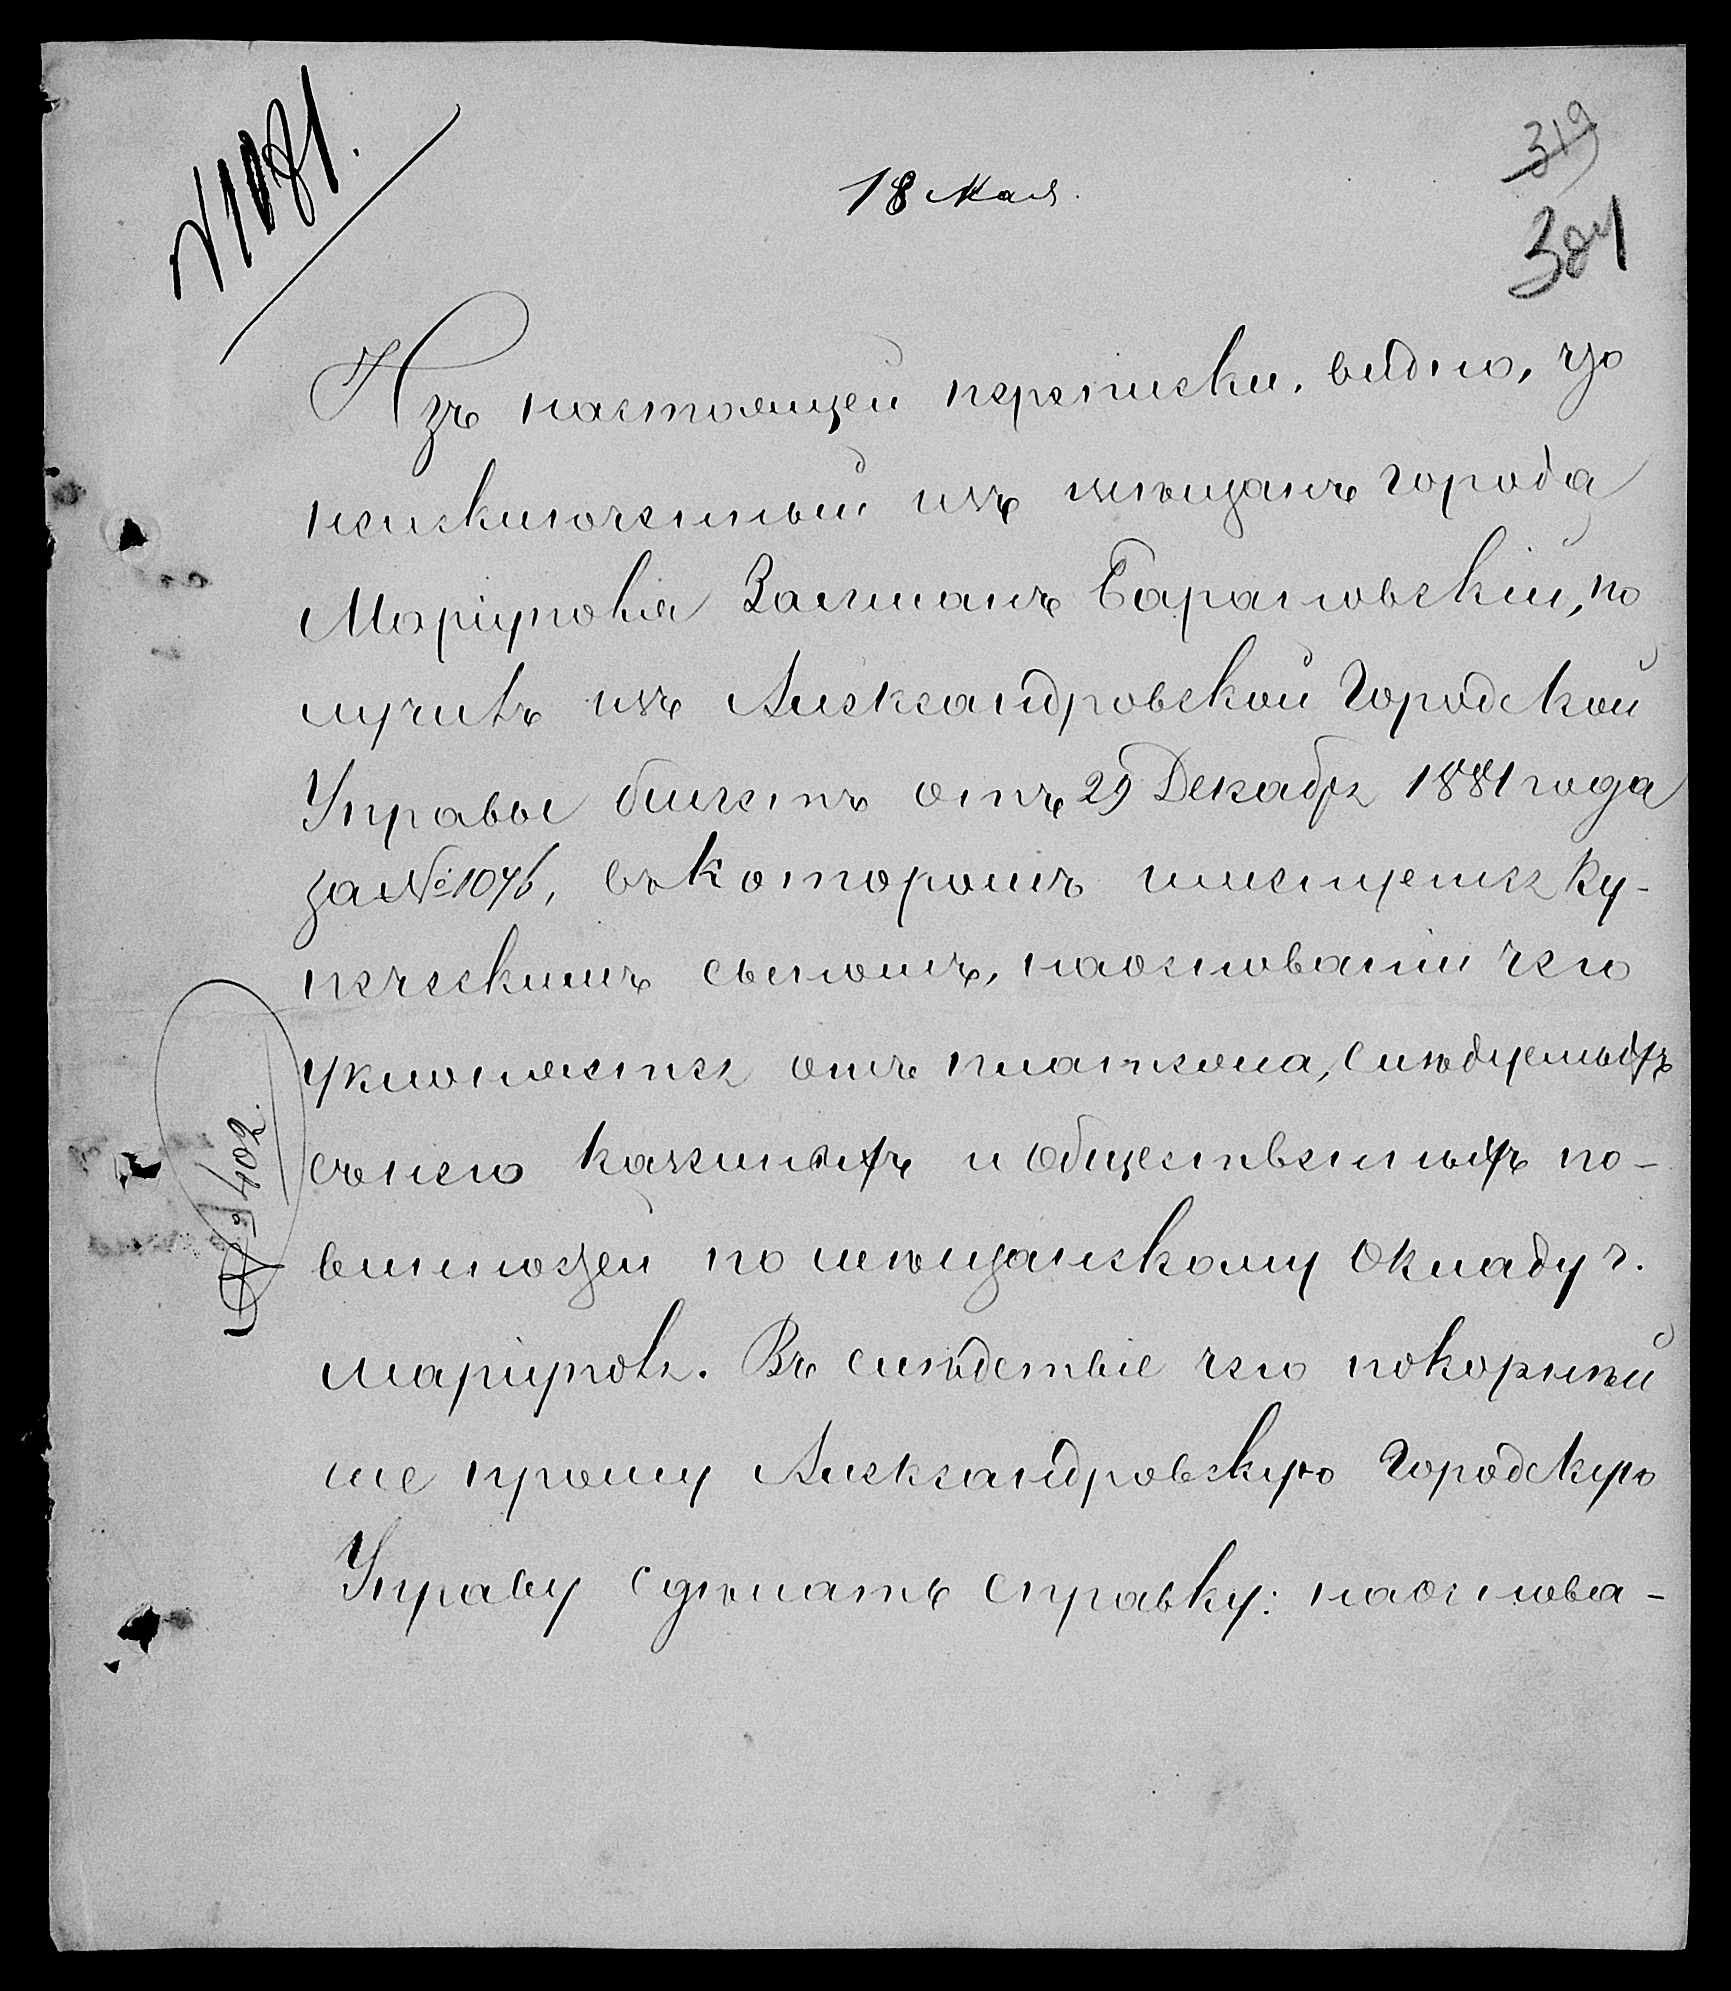 №1081.
319
18 Мая.
304
Изъ настоящей переписки, видно, что
неисключенный изъ мѣщанъ города
Маріуполя Залманъ Барановскій, по
лучивъ изъ Александровской Городской
Управы билетъ отъ 29 Декабря 1881 года
за №1046, въ которомъ именуется Ку-
печескимъ сыномъ, наосновании чего
уклоняется отъ платежа, слѣдуемыхъ
съ него казенныхъ и общественныхъ по-
винностей по мѣщанскому окладу г.
Маріуполя. Въ слѣдствіе чего покорнѣй
ше прошу Александровскую Городскую
Управу сдѣлать справку: наоснова-
№ 1402.